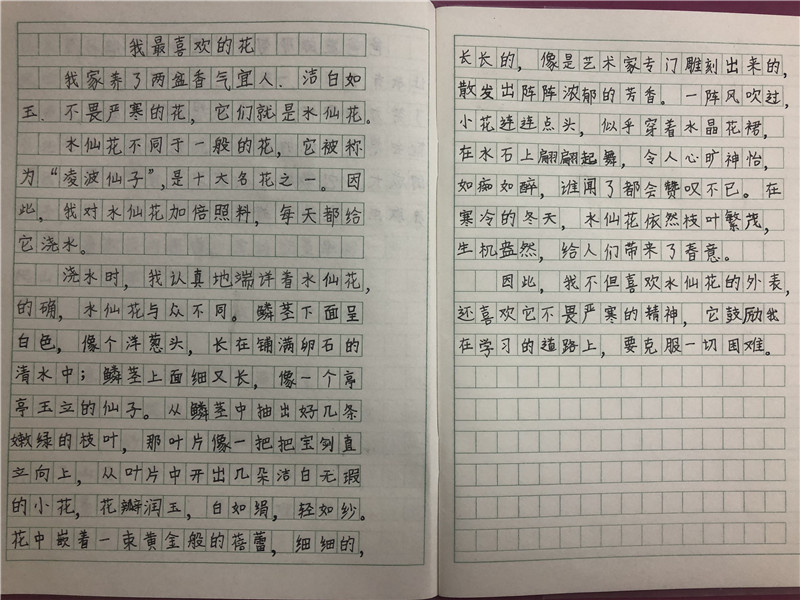 我最喜欢的花
我家养了两盆香气宜人、洁白如
玉、不畏严寒的花，它们就是水仙花。
水仙花不同于一般的花，它被称
为“凌波仙子”，是十大名花之一。因
此，我对水仙花加倍照料，每天都给
它浇水。
浇水时，我认真地端详着水仙花，
的确，水仙花与众不同。鳞茎下面呈
白色，像个洋葱头，长在铺满卵石的
清水中；鳞茎上面细又长，像一个亭
亭玉立的仙子。从鳞茎中抽出好几条
嫩绿的枝叶，那叶片像一把把宝剑直
立向上，从叶片中开出几朵洁白无瑕
的小花，花瓣润玉，白如绢，轻如纱。
花中嵌着一束黄金般的蓓蕾，细细的，
长长的，像是艺术家专门雕刻出来的，
散发出阵阵浓郁的芳香。一阵风吹过，
小花连连点头，似乎穿着水晶花裙，
在水石上翩翩起舞，令人心旷神怡，
如痴如醉，谁闻了都会赞叹不已。在
寒冷的冬天，水仙花依然枝叶繁茂，
生机盎然，给人们带来了春意。
因此，我不但喜欢水仙花的外表，
还喜欢它不畏严寒的精神，它鼓励我
在学习的道路上，要克服一切困难。